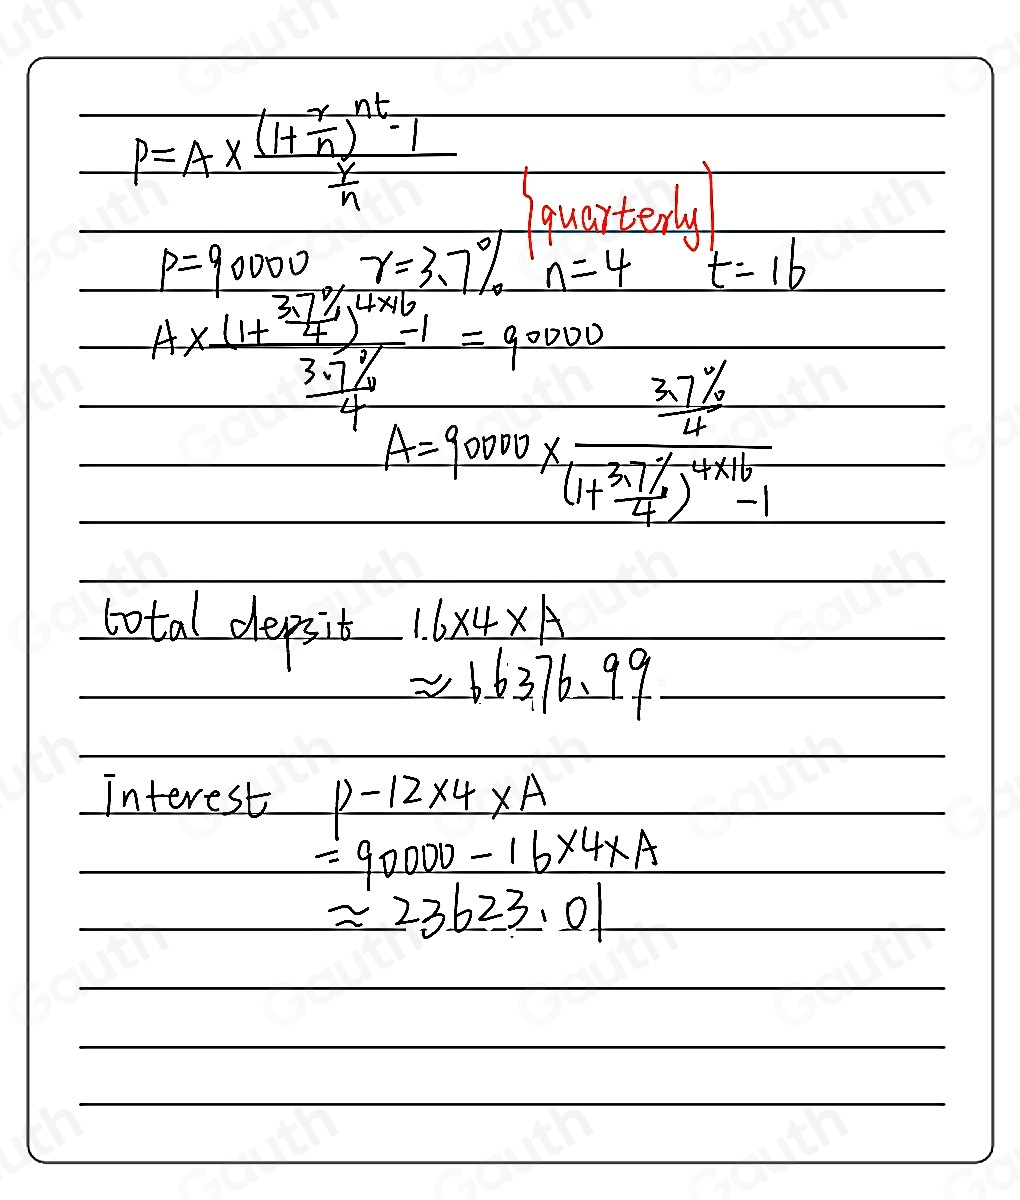 P=A×((1+r/n)^nt-1)/(r/n)
{quarterly}
P=90000 r=3.7% n=4 t=16
A×((1+3.7%/4)^4×16-1)/(3.7%/4) = 90000
A=90000×(3.7%/4)/((1+3.7%/4)^4×16-1)
total depsit 16×4×A
≈66376.99
Interest P-12×4×A
=90000-16×4×A
≈23623.01
Gauth